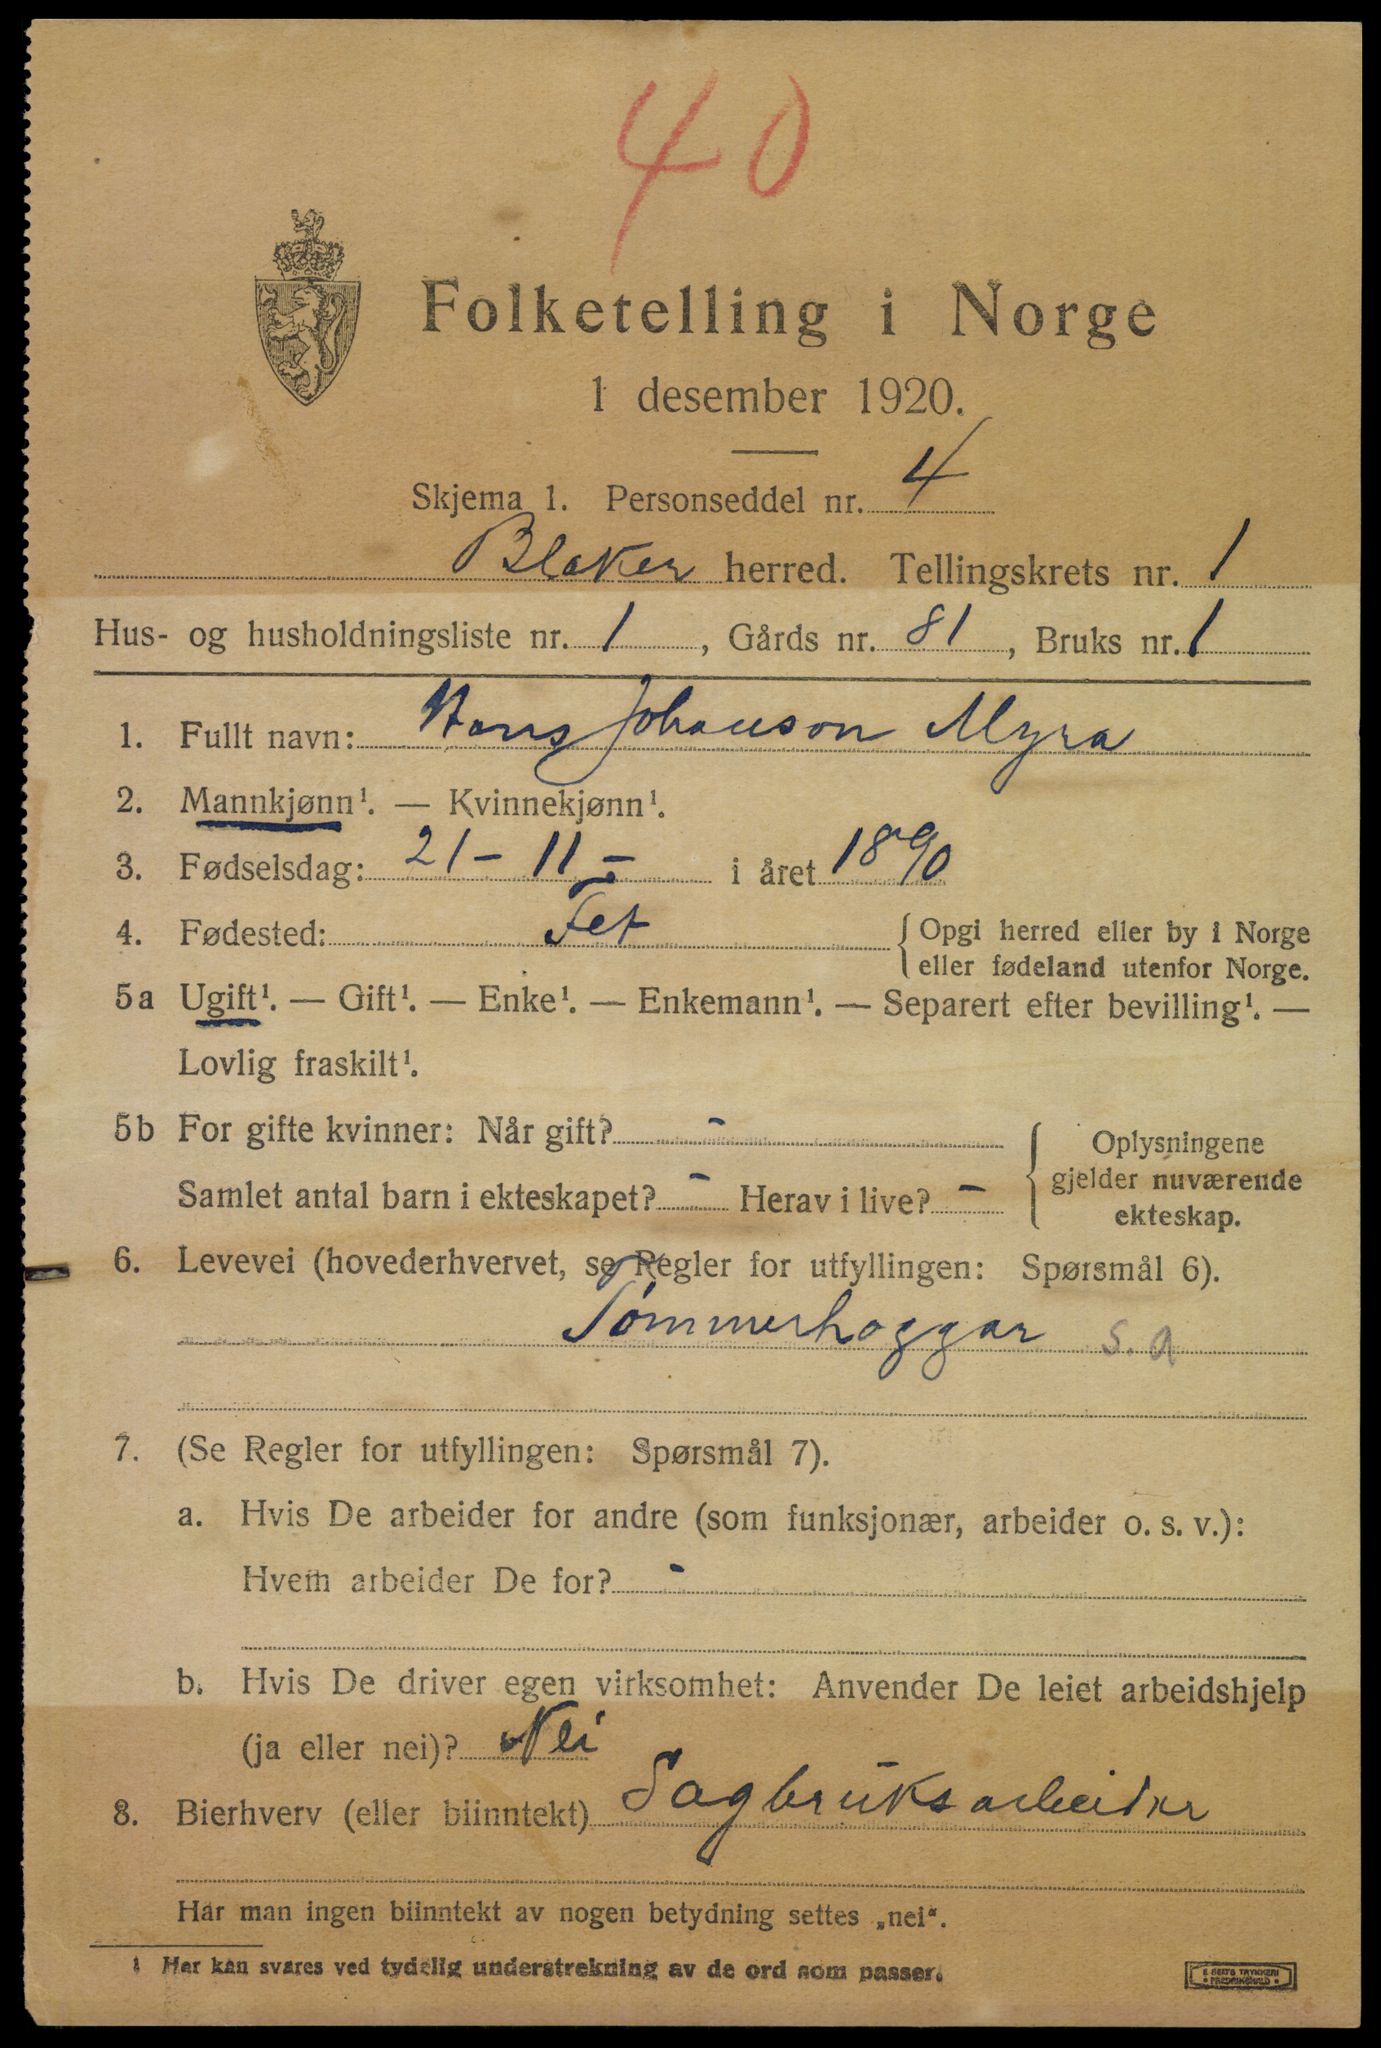 40
Folketelling i Norge
1 desember 1920.
Skjema 1. Personseddel nr. 4
Blaker herred. Tellingskrets nr. 1
Hus- og husholdningsliste nr. 1, Gårds nr. 81, Bruks nr. 1
1. Fullt navn: Hans Johanson Myra
2. Mannkjønn¹. — Kvinnekjønn¹.
3. Fødselsdag: 21 – 11 – i året 1890
4. Fødested: Fet { Opgi herred eller by i Norge
eller fødeland utenfor Norge.
5a Ugift¹. — Gift¹. — Enke¹. — Enkemann¹. — Separert efter bevilling¹. —
Lovlig fraskilt¹.
5b For gifte kvinner: Når gift? -
Samlet antal barn i ekteskapet? - Herav i live? -
Oplysningene
gjelder nuværende
ekteskap.
6. Levevei (hovederhvervet, se Regler for utfyllingen: Spørsmål 6).
Tømmerhoggar s. a
7. (Se Regler for utfyllingen: Spørsmål 7).
a. Hvis De arbeider for andre (som funksjonær, arbeider o. s. v.):
Hvem arbeider De for? -
b. Hvis De driver egen virksomhet: Anvender De leiet arbeidshjelp
(ja eller nei)? Nei
8. Bierhverv (eller biinntekt) Sagbruksarbeider
Har man ingen biinntekt av nogen betydning settes „nei“.
1 Her kan svares ved tydelig understrekning av de ord som passer.
E SEITS TRYKKERI
• FREDRIKSHALD •